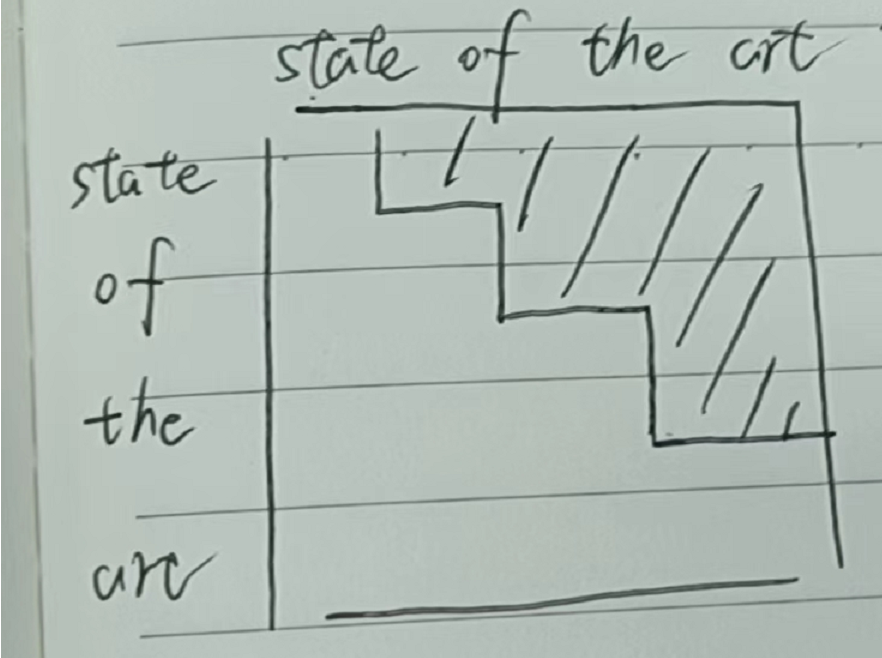 state of the art
state
of
the
art